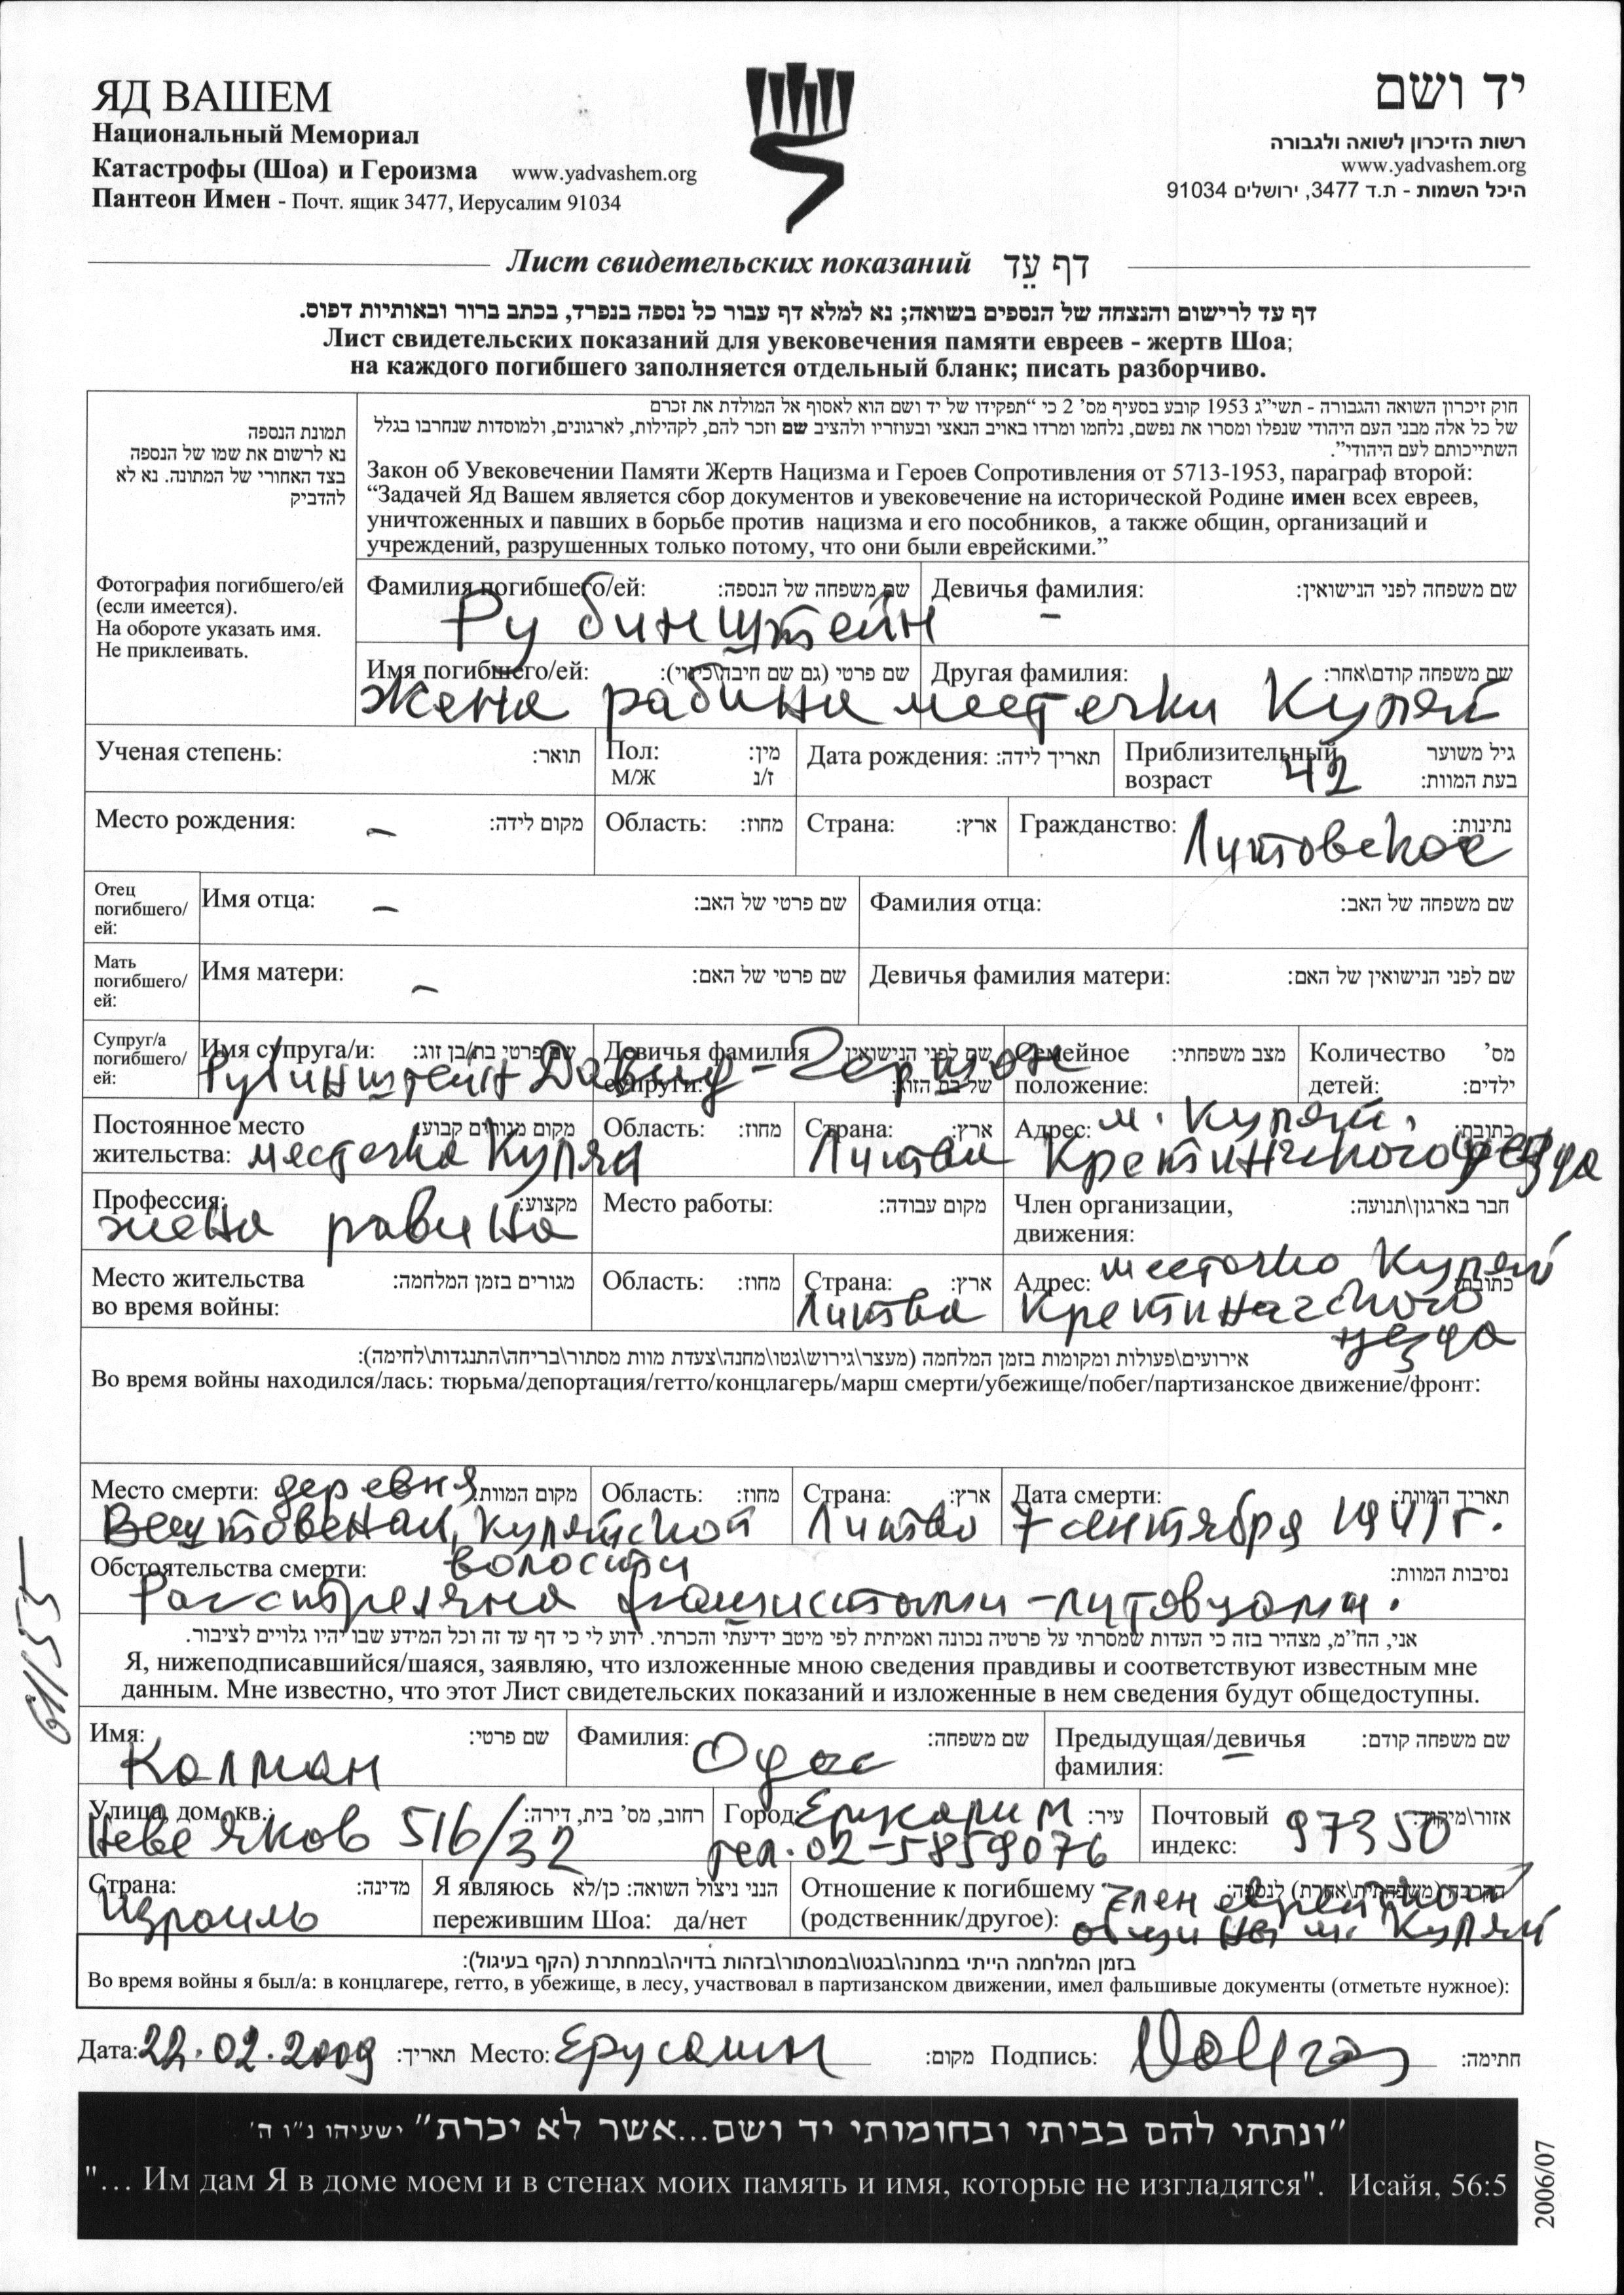 ЯД ВАШЕМ
Национальный Мемориал
Катастрофы (Шоа) и Героизма www.yadvashem.org
Пантеон Имен - Почт. ящик 3477, Иерусалим 91034
יד ושם
רשות הזיכרון לשואה ולגבורה
www.yadvashem.org
היכל השמות - ת.ד 3477, ירושלים 91034
Лист свидетельских показаний דף עֵד
דף עד לרישום והנצחה של הנספים בשואה; נא למלא דף עבור כל נספה בנפרד, בכתב ברור ובאותיות דפוס.
Лист свидетельских показаний для увековечения памяти евреев - жертв Шоа;
на каждого погибшего заполняется отдельный бланк; писать разборчиво.
תמונת הנספה
נא לרשום את שמו של הנספה
בצד האחורי של המתונה. נא לא
להדביק
Фотография погибшего/ей
(если имеется).
На обороте указать имя.
Не приклеивать.
חוק זיכרון השואה והגבורה - תשי"ג 1953 קובע בסעיף מס' 2 כי "תפקידו של יד ושם הוא לאסוף אל המולדת את זכרם
של כל אלה מבני העם היהודי שנפלו ומסרו את נפשם, נלחמו ומרדו באויב הנאצי ובעוזריו ולהציב שם וזכר להם, לקהילות, לארגונים, ולמוסדות שנחרבו בגלל
השתייכותם לעם היהודי".
Закон об Увековечении Памяти Жертв Нацизма и Героев Сопротивления от 5713-1953, параграф второй:
“Задачей Яд Вашем является сбор документов и увековечение на исторической Родине имен всех евреев,
уничтоженных и павших в борьбе против нацизма и его пособников, а также общин, организаций и
учреждений, разрушенных только потому, что они были еврейскими.”
Фамилия погибшего/ей: שם משפחה של הנספה: Девичья фамилия: שם משפחה לפני הנישואין:
Рубинштейн -
Имя погибшего/ей: שם פרטי (גם שם חיבה\כינוי): Другая фамилия: שם משפחה קודם\אחר:
жена рабина местечки Куляй
Ученая степень: תואר: Пол: מין: Дата рождения: תאריך לידה: Приблизительный גיל משוער
М/Ж ז/נ возраст 42 בעת המוות:
Место рождения: - מקום לידה: Область: מחוז: Страна: ארץ: Гражданство: נתינות:
Литовское
Отец
погибшего/
ей:
Имя отца: - שם פרטי של האב: Фамилия отца: שם משפחה של האב:
Мать
погибшего/
ей:
Имя матери: - שם פרטי של האם: Девичья фамилия матери: שם לפני הנישואין של האם:
Супруг/а
погибшего/
ей:
Имя супруга/и: שם פרטי בת/בן זוג: Девичья фамилия שם לפני הנישואין Семейное מצב משפחתי: Количество מס'
супруги: של בת הזוג: положение: детей: ילדים:
Рубинштейн Давид-Гершон
Постоянное место מקום מגורים קבוע: Область: מחוז: Страна: ארץ: Адрес: м. Куляй, כתובת:
жительства: местечка Куляй Литва Кретингского уезда
Профессия: מקצוע: Место работы: מקום עבודה: Член организации, חבר בארגון\תנועה:
жена равина движения:
Место жительства מגורים בזמן המלחמה: Область: מחוז: Страна: ארץ: Адрес: местечко Куляй כתובת:
во время войны: Литва Кретингского
уезда
אירועים\פעולות ומקומות בזמן המלחמה (מעצר\גירוש\גטו\מחנה\צעדת מוות מסתור\בריחה\התנגדות\לחימה):
Во время войны находился/лась: тюрьма/депортация/гетто/концлагерь/марш смерти/убежище/побег/партизанское движение/фронт:
Место смерти: деревня מקום המוות: Область: מחוז: Страна: ארץ: Дата смерти: תאריך המוות:
Куляйской Литва 7 сентября 1941 г.
волости
Обстоятельства смерти: נסיבות המוות:
Расстреляна фашистами-литовцами.
אני, הח"מ, מצהיר בזה כי העדות שמסרתי על פרטיה נכונה ואמיתית לפי מיטב ידיעתי והכרתי. ידוע לי כי דף עד זה וכל המידע שבו יהיו גלויים לציבור.
Я, нижеподписавшийся/шаяся, заявляю, что изложенные мною сведения правдивы и соответствуют известным мне
данным. Мне известно, что этот Лист свидетельских показаний и изложенные в нем сведения будут общедоступны.
Имя: שם פרטי: Фамилия: שם משפחה: Предыдущая/девичья שם משפחה קודם:
Калман Одас фамилия: -
Улица, дом, кв.: רחוב, מס' בית, דירה: Город: Ерусалим עיר: Почтовый אזור\מיקוד:
Неве Яков 516/32 тел. 02-5859076 индекс: 97350
Страна: מדינה: Я являюсь הנני ניצול השואה: כן/לא Отношение к погибшему הקרבה (משפחתית\אחרת) לנספה:
Израиль пережившим Шоа: да/нет (родственник/другое): член еврейской
общины м. Куляй
בזמן המלחמה הייתי במחנה\בגטו\במסתור\בזהות בדויה\במחתרת (הקף בעיגול):
Во время войны я был/а: в концлагере, гетто, в убежище, в лесу, участвовал в партизанском движении, имел фальшивые документы (отметьте нужное):
Дата: 22.02.2009 תאריך: Место: Ерусалим מקום: Подпись: חתימה:
"ונתתי להם בביתי ובחומותי יד ושם...אשר לא יכרת" ישעיהו נ"ו ה'
"... Им дам Я в доме моем и в стенах моих память и имя, которые не изгладятся". Исайя, 56:5
2006/07